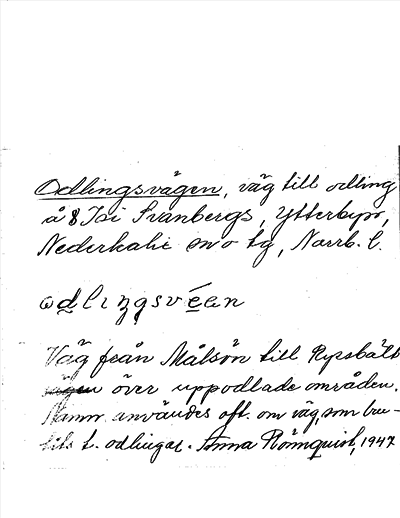 Odlingsvägen, väg till odling
å 8 Isi Svanbergs, Ytterbyn,
Nederkalix sn o tg, Norrb. l.
ωdlıŋgsvéɛn
Väg från Målsön till Rysbält
över uppodlade områden.
Namn. användes oft. om väg, som bru-
tits t. odlingar. Anna Rönnquist, 1947